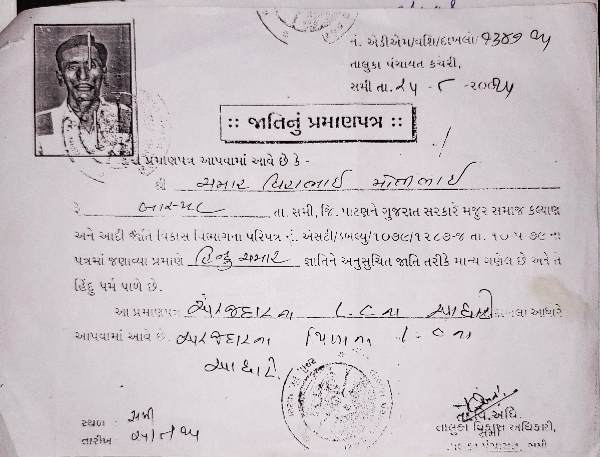 નં. એડીએમ/વશિ/દાખલા/
તાલુકા પંચાયત કચેરી,
સમી તા. ૨૫ - ૮ - ૨૦૦
:: જાતિનું પ્રમાણપત્ર ::
પ્રમાણપત્ર આપવામાં આવે છે કે -
શ્રી ચમાર
રે તા. સમી, જિ. પાટણને ગુજરાત સરકારે મજુર સમાજ કલ્યાણ
અને આદી જાતિ વિકાસ વિભાગના પરિપત્ર નં. એસટી/ડબલ્યુ/૧૦૭૯/૧૨૮૭-જ તા. ૧૦-૫-૭૯ના
પત્રમાં જણાવ્યા પ્રમાણે હિન્દુ ચમાર જ્ઞાતિને અનુસુચિત જાતિ તરીકે માન્ય ગણેલ છે અને તે
હિંદુ ધર્મ પાળે છે.
આ પ્રમાણપત્ર અરજદારના L.C ના આધારે દાખલા આધારે
આપવામાં આવે છે. અરજદારના પિતાના L.C ના
આધારે.
સ્થળ : સમી
તારીખ
તાલુકા વિકાસ અધિકારી,
સમી